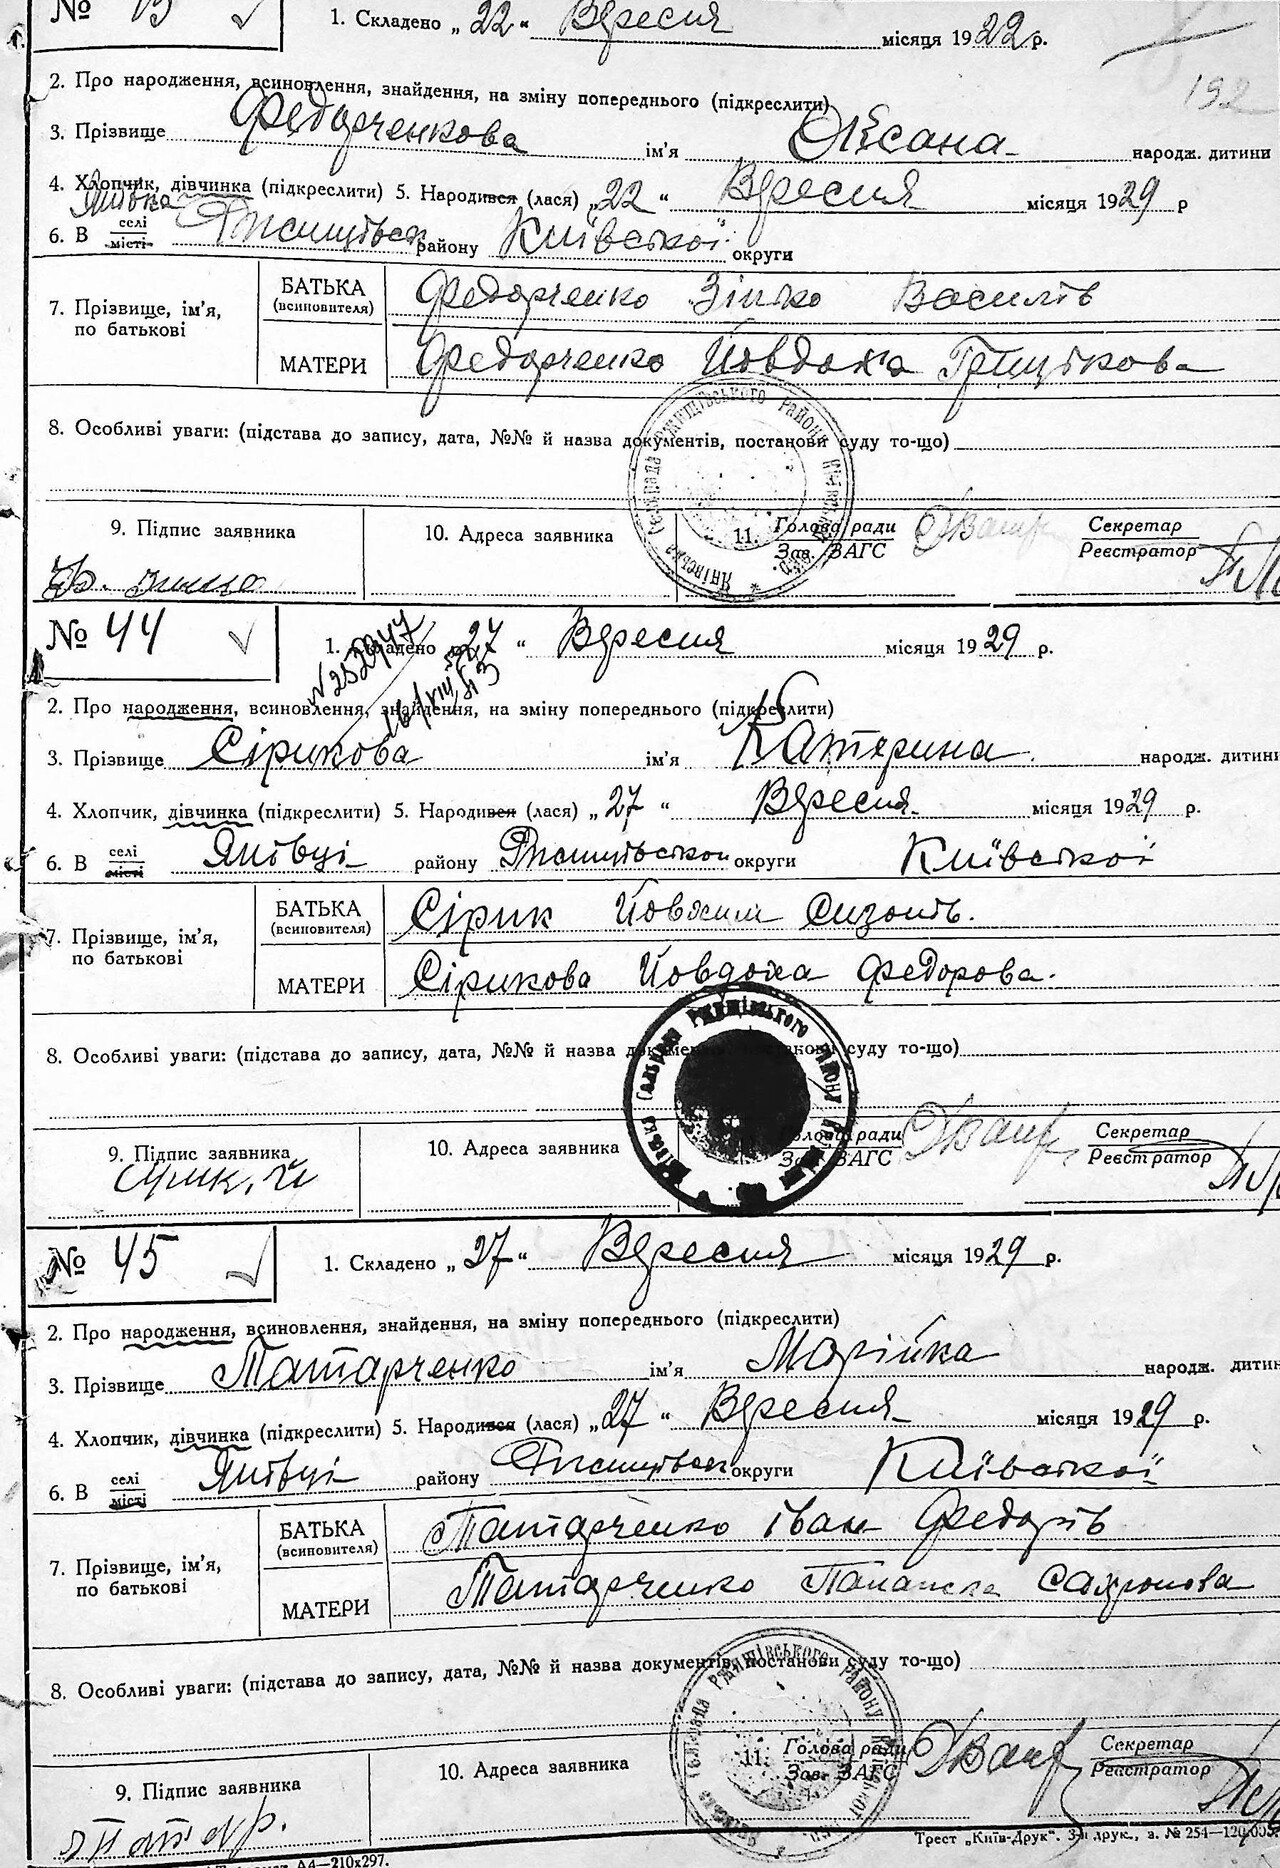 №
1. Складено „22“ Вересня місяця 1922 р.
192
2. Про народження, всиновлення, знайдення, на зміну попереднього (підкреслити)
3. Прізвище Федорченкова ім'я Оксана народж. дитини
4. Хлопчик, дівчинка (підкреслити) 5. Народився (лася) „22“ Вересня місяця 1929 р
6. В селі місті Янівка Ржищівськ району Київської округи
7. Прізвище, ім'я, по батькові
БАТЬКА (всиновителя) Федорченко Зінько Василів
МАТЕРИ Федорченко Йовдоха Грицькова
8. Особливі уваги: (підстава до запису, дата, №№ й назва документів, постанови суду то-що)
9. Підпис заявника
10. Адреса заявника
11. Голова ради Зав. ЗАГС
Секретар Реєстратор
№ 44
1. Складено „27“ Вересня місяця 1929 р.
2. Про народження, всиновлення, знайдення, на зміну попереднього (підкреслити)
3. Прізвище Сірикова ім'я Катерина народж. дитини
4. Хлопчик, дівчинка (підкреслити) 5. Народився (лася) „27“ Вересня місяця 1929 р.
6. В селі місті Янівці району Ржищівської округи Київської
7. Прізвище, ім'я, по батькові
БАТЬКА (всиновителя) Сірик Йовхим Сизонів.
МАТЕРИ Сірикова Йовдоха Федорова.
8. Особливі уваги: (підстава до запису, дата, №№ й назва документів, постанови суду то-що)
9. Підпис заявника
10. Адреса заявника
Голова ради Зав. ЗАГС
Секретар Реєстратор
№ 45
1. Складено „27“ Вересня місяця 1929 р.
2. Про народження, всиновлення, знайдення, на зміну попереднього (підкреслити)
3. Прізвище Татарченко ім'я Марійка народж. дитин
4. Хлопчик, дівчинка (підкреслити) 5. Народився (лася) „27“ Вересня місяця 1929 р.
6. В селі місті Янівці району Ржищівськ округи Київської
7. Прізвище, ім'я, по батькові
БАТЬКА (всиновителя) Татарченко Іван Федорів
МАТЕРИ Татарченко Палажка Сахронова
8. Особливі уваги: (підстава до запису, дата, №№ й назва документів, постанови суду то-що)
9. Підпис заявника
Татар.
10. Адреса заявника
11. Голова ради Зав. ЗАГС
Секретар Реєстратор
Трест „Київ-Друк“. 3-я друк., з. № 254—120.000.
А4—210х297.